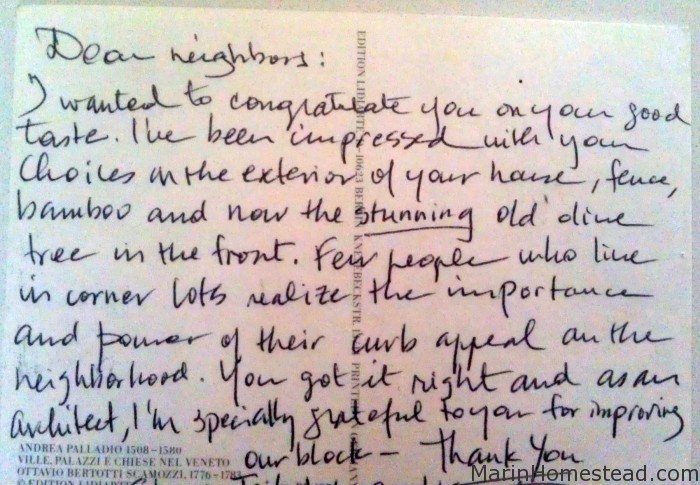 Dear neighbors:
I wanted to congratulate you on your good
taste. I've been impressed with your
choices on the exterior of your house, fence,
bamboo and now the stunning old olive
tree in the front. Few people who live
in corner lots realize the importance
and power of their curb appeal on the
neighborhood. You got it right and as an
architect, I'm specially grateful to you for improving
our block – Thank you
EDITION LIDIARTE
10623 BERLIN KNESEBECKSTR.
ANDREA PALLADIO 1508–1580
VILLE, PALAZZI E CHIESE NEL VENETO
OTTAVIO BERTOTTI SCAMOZZI, 1776–1783
© EDITION LIDIARTE
MarinHomestead.com